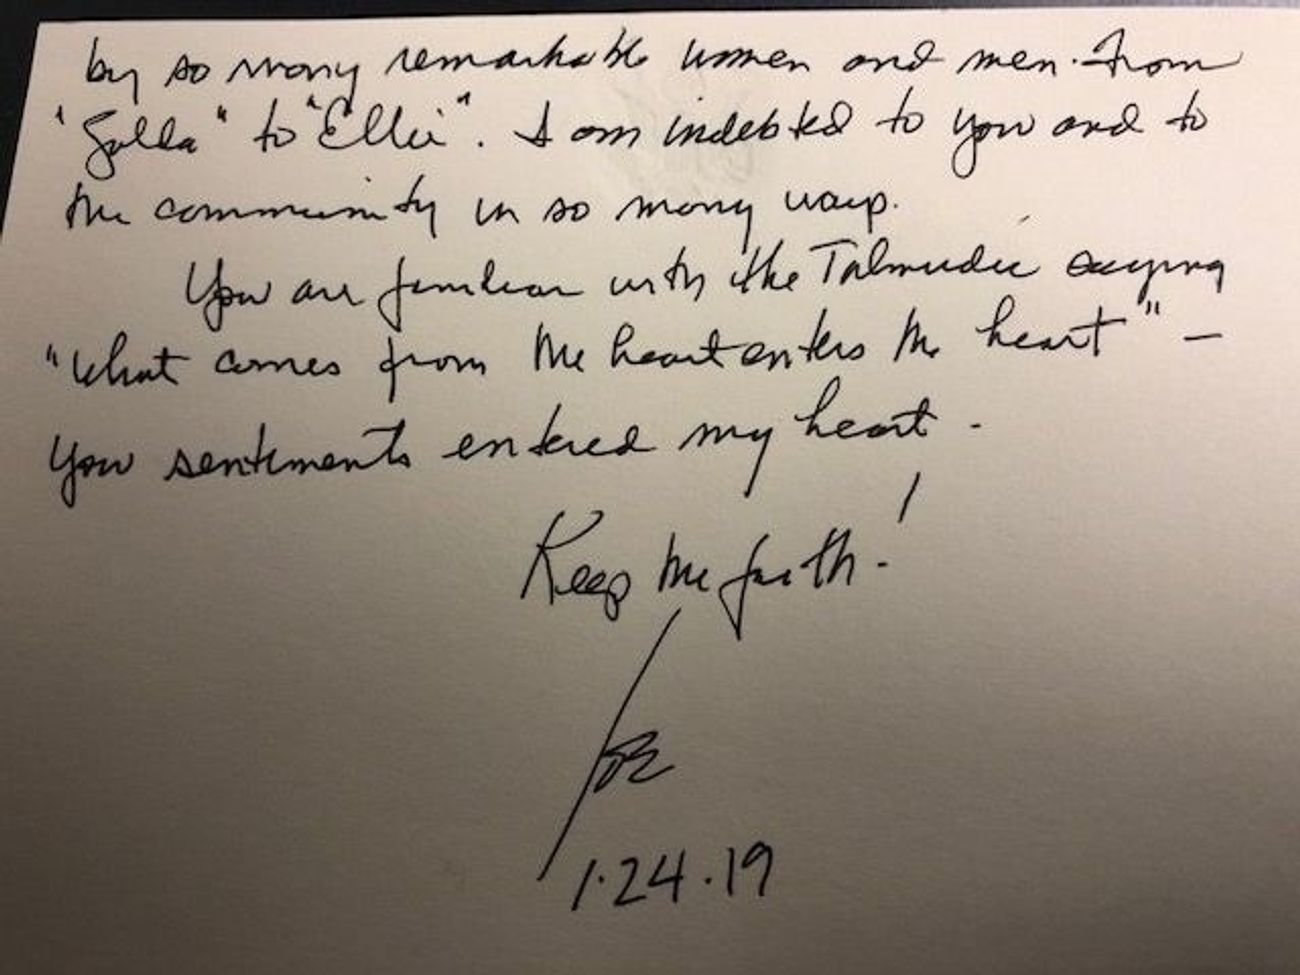 by so many remarkable women and men. From
"Golda" to "Ellie". I am indebted to you and to
the community in so many ways.
You are familiar with the Talmudic saying
"What comes from the heart enters the heart" –
Your sentiments entered my heart.
Keep the faith!
Joe
1.24.19